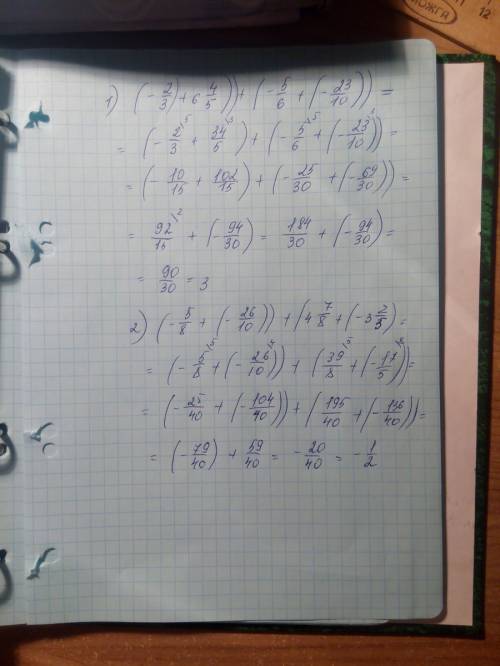 МОЖГА
12
1) (-2/3 + 6 4/5)) + (-5/6 + (-23/10)) =
= (-2/3 ^5 + 34/5 ^3) + (-5/6 ^5 + (-23/10)) =
= (-10/15 + 102/15) + (-25/30 + (-69/30)) =
= 92/15 ^2 + (-94/30) = 184/30 + (-94/30) =
= 90/30 = 3
2) (-5/8 + (-26/10)) + (4 7/8 + (-3 2/5) =
= (-5/8 ^5 + (-26/10 ^4)) + (39/8 ^5 + (-17/5 ^8)) =
= (-25/40 + (-104/40)) + (195/40 + (-136/40)) =
= (-79/40) + 59/40 = -20/40 = -1/2